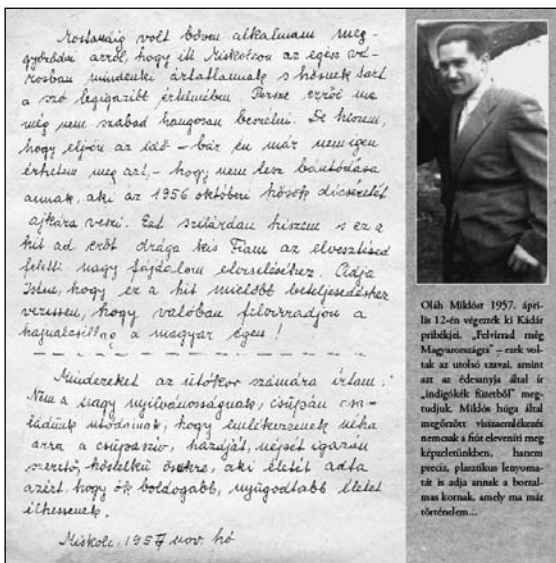 Mostanáig volt bőven alkalmam meg-
győződni arról, hogy itt Miskolcon az egész vá-
rosban mindenki ártatlannak s hősnek tart
a szó legigazibb értelmében. Persze erről ma
még nem szabad hangosan beszélni. De hiszem,
hogy eljön az idő – bár én már nem igen
érhetem meg azt, – hogy nem lesz bántódása
annak, aki az 1956 októberi hősök dícséretét
ajkára veszi. Ezt szilárdan hiszem s ez a
hit ad erőt drága kis Fiam az elvesztésed
feletti nagy fájdalom elviseléséhez. Adja
Isten, hogy ez a hit mielőbb beteljesedéshez
vezessen, hogy valóban felvirradjon a
hajnalcsillag a magyar égen!
Mindezeket az utókor számára írtam.
Nem a nagy nyilvánosságnak, csupán csa-
ládunk utódainak, hogy emlékezzenek néha
arra a csupaszív, hazáját, népét igazán
szerető, hőslelkű ősükre, aki életét adta
azért, hogy ők boldogabb, nyugodtabb életet
élhessenek.
Miskolc, 1957 nov. hó
Oláh Miklóst 1957. ápri-
lis 12-én végezték ki Kádár
pribékjei. „Felvirrad még
Magyarországra” – ezek vol-
tak az utolsó szavai, amint
azt az édesanyja által írt
„indigókék füzetből” meg-
tudjuk. Miklós húga által
megőrzött visszaemlékezés
nemcsak a fiút eleveníti meg
képzeletünkben, hanem
precíz, plasztikus lenyoma-
tát is adja annak a borzal-
mas kornak, amely ma már
történelem...